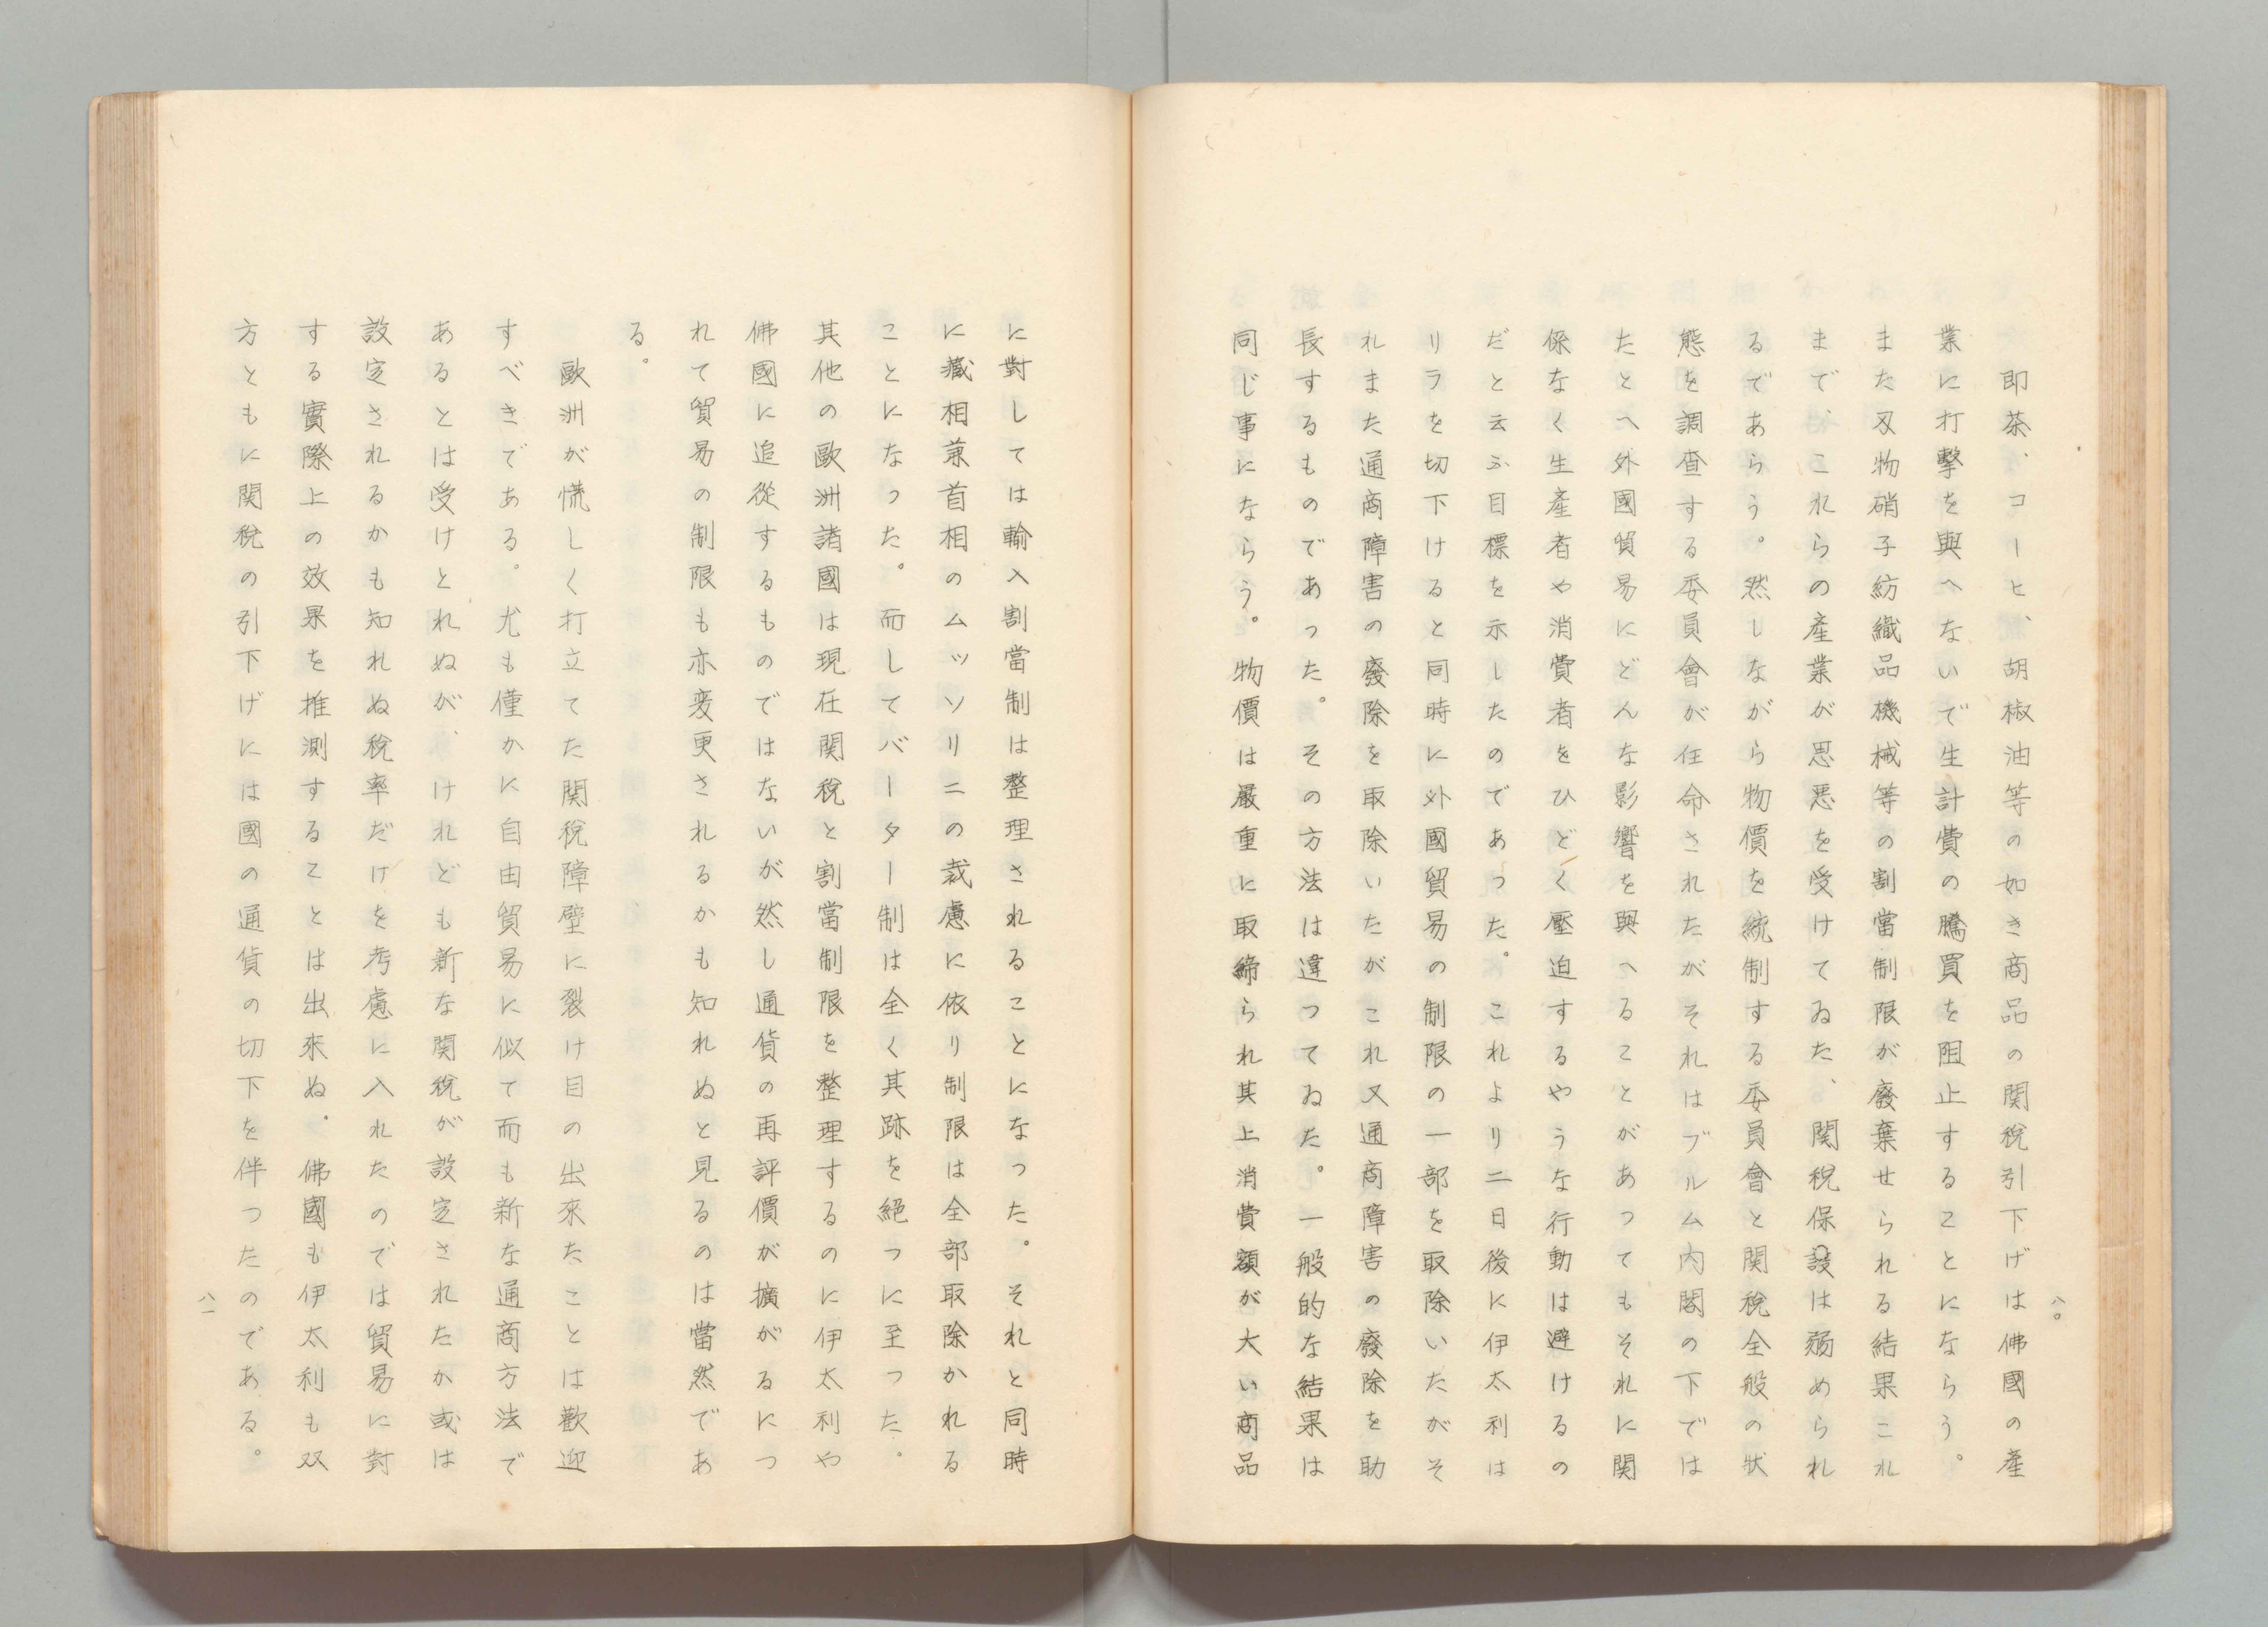 八〇
即茶、コーヒ、胡椒油等の如き商品の関稅引下げは佛國の產
業に打擊を與へないで生計費の騰買を阻止することにならう。
また刄物硝子紡織品機械等の割當制限が廢棄せられる結果これ
まで、これらの產業が思悪を受けてゐた、関稅保設は弱められ
るであらう。然しながら物價を統制する委員會と関稅全般の狀
態を調査する委員會が任命されたがそれはブルム内閣の下では
たとへ外國貿易にどんな影響を與へることがあつてもそれに関
係なく生產者や消費者をひどく壓迫するやうな行動は避けるの
だと云ふ目標を示したのであつた。これより二日後に伊太利は
リラを切下けると同時に外國貿易の制限の一部を取除いたがそ
れまた通商障害の廢除を取除いたがこれ又通商障害の廢除を助
長するものであつた。その方法は違つてゐた。一般的な結果は
同じ事にならう。物價は嚴重に取締られ其上消費額が大い商品
に對しては輸入割當制は整理されることになつた。それと同時
に藏相兼首相のムッソリニの裁慮に依り制限は全部取除かれる
ことになつた。而してバーター制は全く其跡を絕つに至つた。
其他の歐洲諸國は現在関稅と割當制限を整理するのに伊太利や
佛國に追從するものではないが然し通貨の再評價が擴がるにつ
れて貿易の制限も亦変更されるかも知れぬと見るのは當然であ
る。
歐洲が慌しく打立てた関稅障壁に裂け目の出來たことは歡迎
すべきである。尤も僅かに自由貿易に似て而も新な通商方法で
あるとは受けとれぬが、けれども新な関稅が設定されたか或は
設定されるかも知れぬ稅率だけを考慮に入れたのでは貿易に對
する實際上の效果を推測することは出來ぬ。佛國も伊太利も双
方ともに関稅の引下げには國の通貨の切下を伴つたのである。
八一